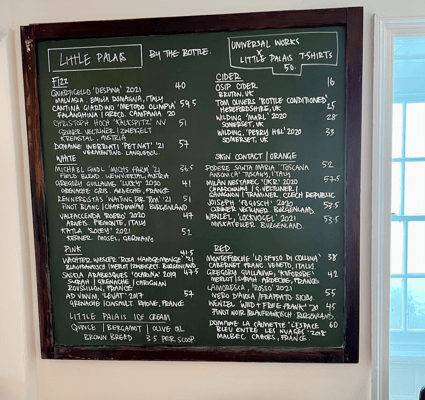 LITTLE PALAIS
BY THE BOTTLE.
UNIVERSAL WORKS
X
LITTLE PALAIS T-SHIRTS
50.
FIZZ
QUARTICELLO 'DESPINA' 2021 40
MALVASIA EMILIA ROMAGNA, ITALY
CANTINA GIARDINO 'METODO OLIMPIA' 59.5
FALANGHINA | GRECO. CAMPANIA 20
CHRISTOPH HOCH 'KALKSPITZ' NV 51
GRUNER VELTLINER | ZWEIGELT
KREMSTAL, AUSTRIA
DOMAINE 'PETNAT' '21 57
VERMENTINO. LANGUEDOC.
WHITE
MICHAEL GINDL '21
FIELD BLEND WEINVIERTEL, AUSTRIA
GREGORY GUILLAUME, 2020 41
GRENACHE ARDECHE, FRANCE
RENNERSISTAS 'WAITING FOR TOM' '21 51
PINOT BLANC | CHARDONNAY BURGENLAND
VALFACCENDA ROERO' 2020 47
ARNEIS PIEMONTE, ITALY
KATLA 2021 52
MOSEL, GERMANY
PINK
'21 44.5
BLAUFRANKISCH | MERLOT | ZWEIGELT BURGENLAND
2019 47.5
SYRAH | GRENACHE | CARIGNAN
ROUSSILLON, FRANCE
AD VINUM, 2017 57
GRENACHE | CINSAULT RHONE, FRANCE
LITTLE PALAIS ICE CREAM
QUINCE | BERGAMOT | OLIVE OIL
BROWN BREAD 3.5 PER SCOOP
CIDER
OSIP CIDER 16
BRUTON, UK
TOM OLIVERS 'BOTTLE CONDITIONED'
HEREFORDSHIRE, UK 25
WILDING, 'MARL' 2020 28
SOMERSET, UK
WILDING, 'PERRY HILL' 2020 33
SOMERSET, UK
SKIN CONTACT | ORANGE
PODERE SANTA MARIA 'TOSCANA 52
ANSONICA' TOSCANA, ITALY
MILAN NESTAREC 2020 57.5
CHARDONNAY | G. VELTLINER |
SAUVIGNON | TRAMINER CZECH REPUBLIC
JOISEPH 2021 55
GRUNER VELTLINER BURGENLAND.
WENZEL, 'LOCKVOGEL' 2021 53.5
MUSKATELLER BURGENLAND.
RED
MONTEFORCHE 38
CABERNET FRANC VENETO, ITALY
GREGORY GUILLAUME, 42
MERLOT | SYRAH ARDECHE, FRANCE
LAMORESCA, 'ROSSO' 2021
NERO D'AVOLA | FRAPPATO SICILY 55
WENZEL, 'WILD + FREE FRANK' '20 45
PINOT NOIR | BLAUFRANKISCH BURGENLAND.
DOMAINE LA CALMETTE 'L'ESPACE 60
BLEU ENTRE LES NUAGES' 2018
MALBEC CAHORS, FRANCE